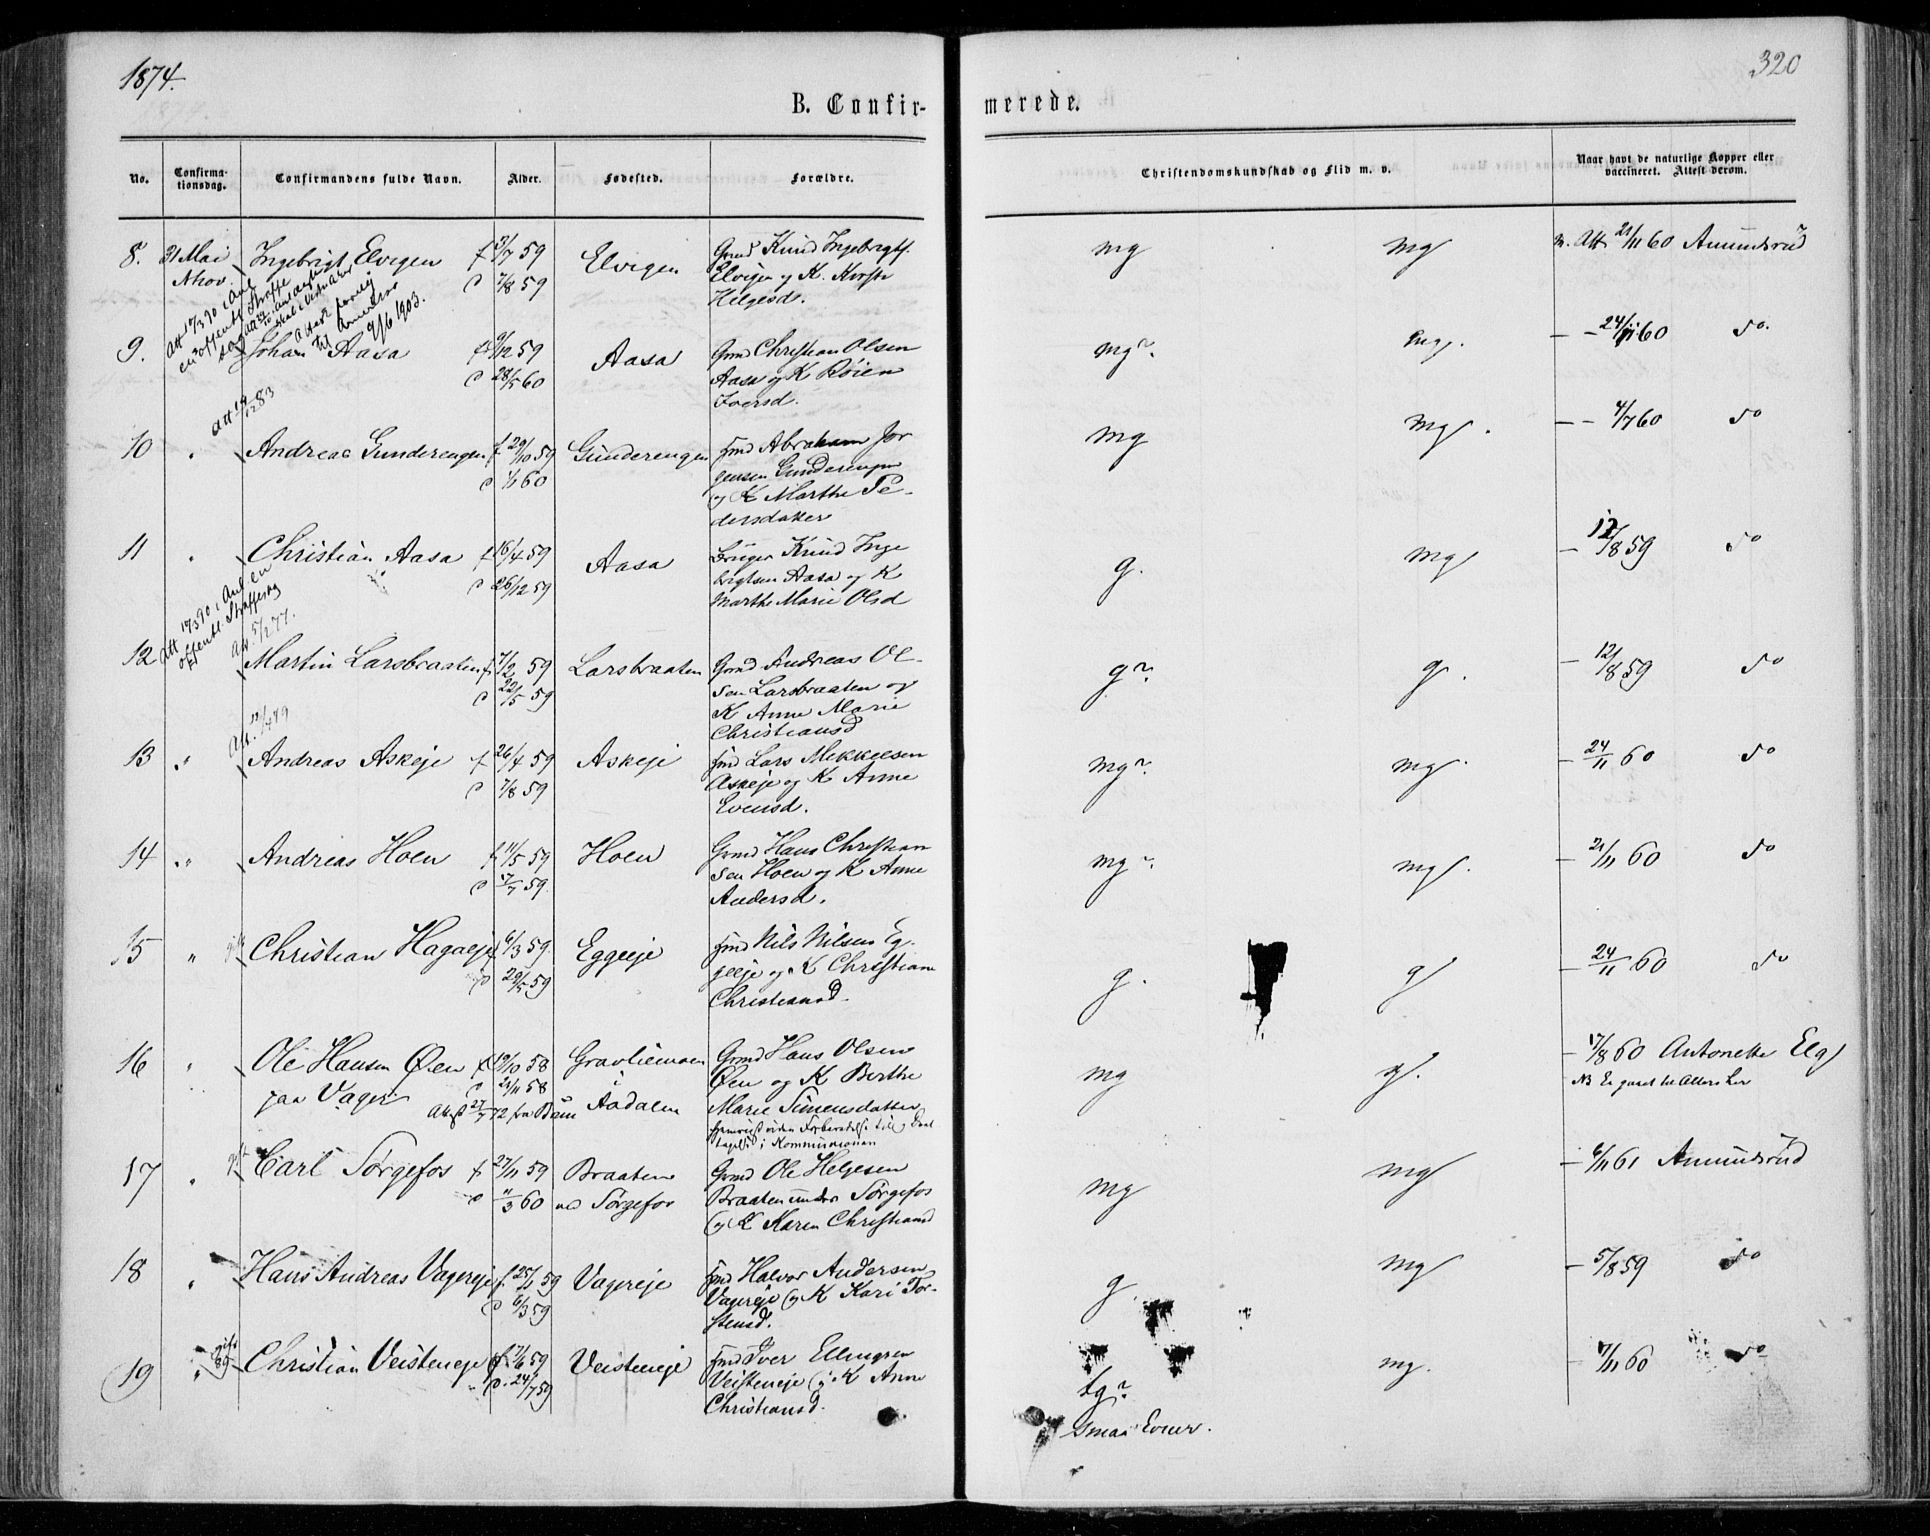 1874.
320
B. Confir-
merede.
No.
Confirma-
tionsdag.
Confirmandens fulde Navn.
Alder.
Fødested.
Forældre.
Christendomskundskab og Flid m. v.
Naar havt de naturlige Kopper eller
vaccineret. Attest derom.
8. 31 Mai Ingebrigt Elvigen f 3/7 59 Elvigen Gmd Knud Ingebrigts. mg mg Att 21/11 60 Amundsrud
d 7/8 59 Elvigen og K. Kirsti
Helgesd.
Att 17/3 90 i Anl
til Amerika
9/6 1903.
9. Johan Aasa f 9/12 59 Aasa Gmd Christian Olsen mg? mg. — 24/11 60 do.
d 28/5 60 Aasa og K Röien
Iversd.
Att 19/12 83
10 Andreas Gunderengen f 29/10 59 Gunderengen fmd Abraham Jor mg mg. — 4/7 60 do
d 1/1 60 gensen Gunderengen
og K Marthe Pe-
dersdatter
11 Christian Aasa f 16/4 59 Aasa Knud Inge g. mg — 12/8 59 do
d 26/12 59 brigtsen Aasa og K
Marthe Marie Olsd
Att 17/3 90 i Anl en
offentl. Straffesag
Att 5/12 77.
12 Martin Larsbraaten f 7/2 59 Larsbraaten Gmd Andreas Ol- g? g. — 12/8 59 do
d 22/5 59 sen Larsbraaten og
K Anne Marie
Christiansd
13 " Andreas Askeje f 26/4 59 Askeje fmd Lars Mikkelsen mg? mg — 24/11 60 do
d 7/8 59 Askeje og K Anne
Evensd.
14 " Andreas Hoen f 11/5 59 Hoen Gmd Hans Christian mg? mg. — 21/11 60 do
d 17/7 59. sen Hoen og K Anne
Andersd.
15 " Christian Hagaeje f 6/3 59. Eggeeje fmd Nils Nilsen Eg- g. g — 24/11 60 do
d 29/5 59 geeje og K Christiane
Christiansd.
16 Ole Hansen Øen f 19/10 58 Gravliemoen Gmd Hans Olsen mg g. — 17/8 60 Antonette Elg
paa Vager d 21/11 58 i Øen og K Berthe
Aadalen Marie Simensdatter
i Kommunionen
17 gift Carl Sørgefos f 27/11 59 Braaten Gmd Ole Helgesen mg mg — 6/11 61 Amundsrud
d 11/3 60 ved Sørgefos Braaten under Sørgefos
og K Karen Christiansd
18 Hans Andreas Vagereje f. 25/1 59 Vagereje fmd Halvor Andersen g mg — 5/8 59 do
d 6/3 59 Vagereje og K Kari Tor-
stensd.
19 gift Christian Veisteneje f. 7/6 59 Veisteneje fmd Iver Ellingsen tg? mg. — 7/11 60 do
d. 24/7 59 Veisteneje og K Anne
Christiansd.
Smaa Evner.